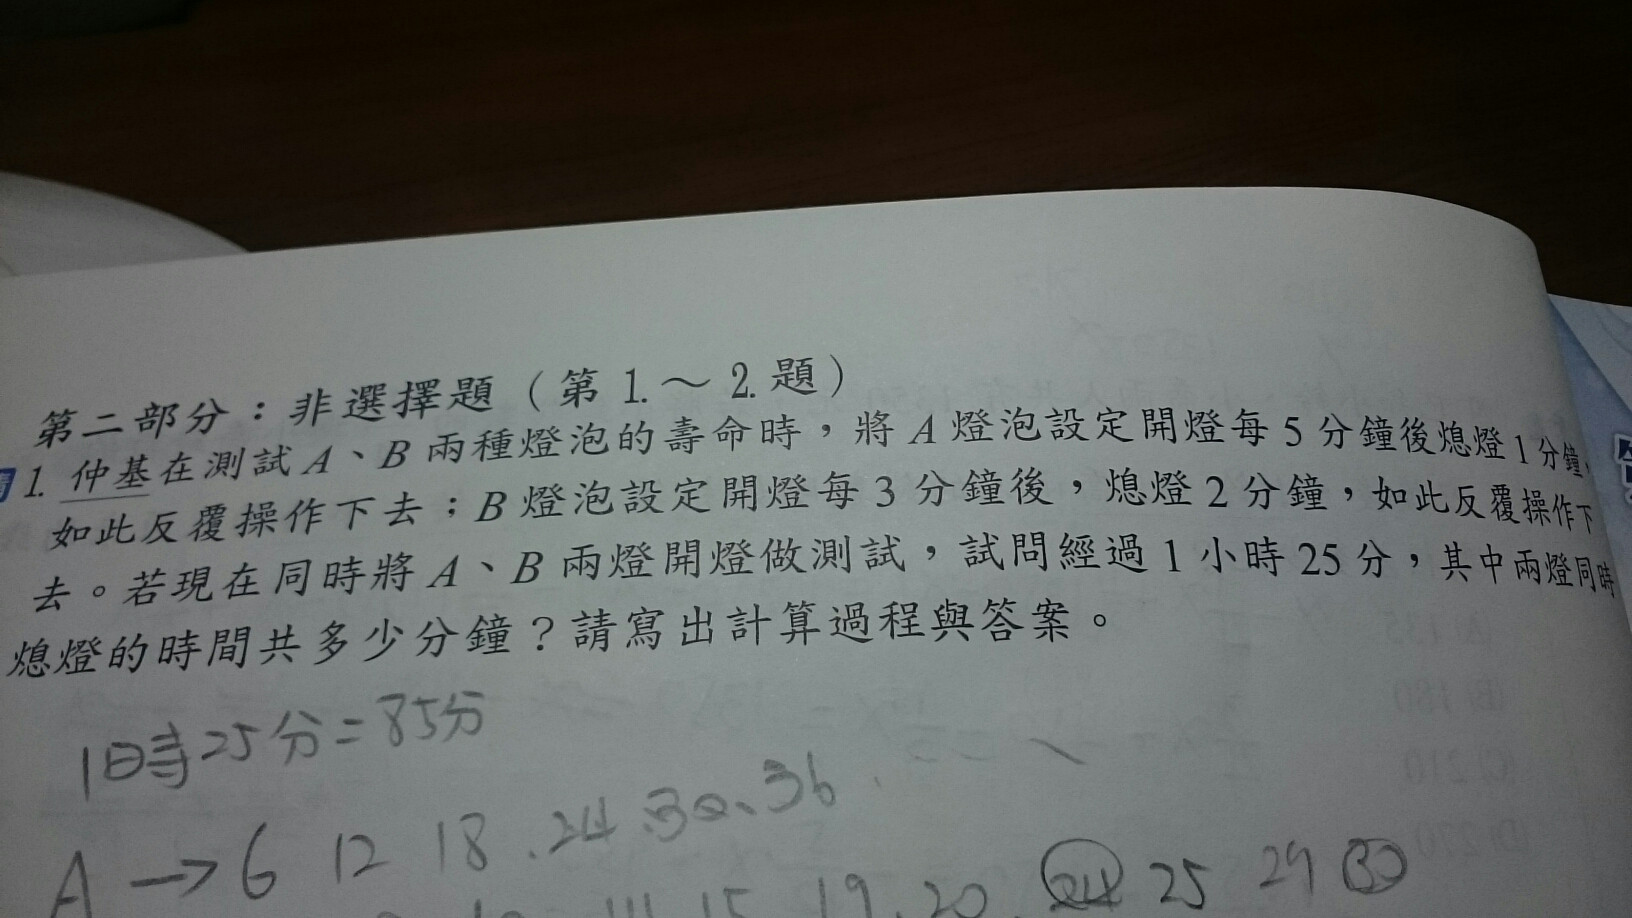 第二部分：非選擇題（第 1.～ 2. 題）
1. 仲基在測試 A、B 兩種燈泡的壽命時，將 A 燈泡設定開燈每 5 分鐘後熄燈 1 分鐘，
如此反覆操作下去；B 燈泡設定開燈每 3 分鐘後，熄燈 2 分鐘，如此反覆操作下
去。若現在同時將 A、B 兩燈開燈做測試，試問經過 1 小時 25 分，其中兩燈同時
熄燈的時間共多少分鐘？請寫出計算過程與答案。
1時25分=85分
A → 6 12 18 . 24 . 30 、 36
15 19 . 20 . 24 25 29 30